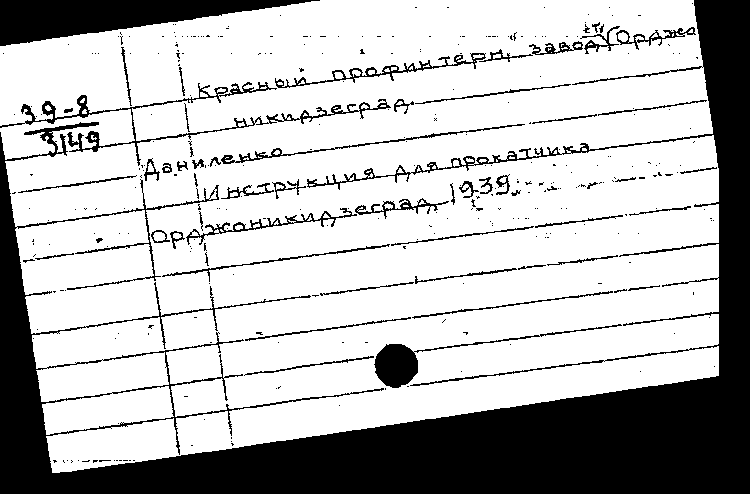 "Красный профинтерн," завод, (Орджо
никидзеград.
39-8
3149
Даниленко
Инструкция для прокатчика
Орджоникидзеград, 1939.